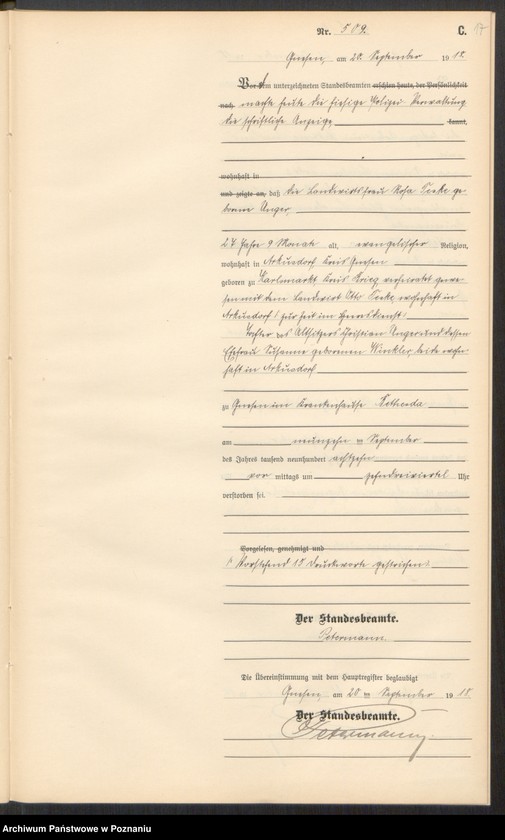 Nr. 509. C.
Gnesen, am 20. September 1918.
Vor dem unterzeichneten Standesbeamten erschien heute, der Persönlichkeit
nach machte heute die hiesige Polizei Verwaltung
die schriftliche Anzeige, kannt,
wohnhaft in
und zeigte an, daß die Landwirtsfrau Rosa ge-
borene Unger,
27 Jahre 9 Monate alt, evangelischer Religion,
wohnhaft in Kreis Gnesen
geboren zu Karlsmarkt Kreis Brieg verheiratet gewe-
sen mit dem Landwirt Otto wohnhaft in
zur Zeit im Heeresdienst
Tochter des Altsitzers Christian Unger und dessen
Ehefrau Susanne geborenen Winkler, beide wohn-
haft in
zu Gnesen im Krankenhause Bethesda
am neunzehn ten September
des Jahres tausend neunhundert achtzehn
vor mittags um zehndreiviertel Uhr
verstorben sei.
Vorgelesen, genehmigt und
Vorstehend 15 Druckworte gestrichen.
Der Standesbeamte.
Petermann
Die Übereinstimmung mit dem Hauptregister beglaubigt
Gnesen, am 20 ten September 1918.
Der Standesbeamte.
Petermann
Archiwum Państwowe w Poznaniu